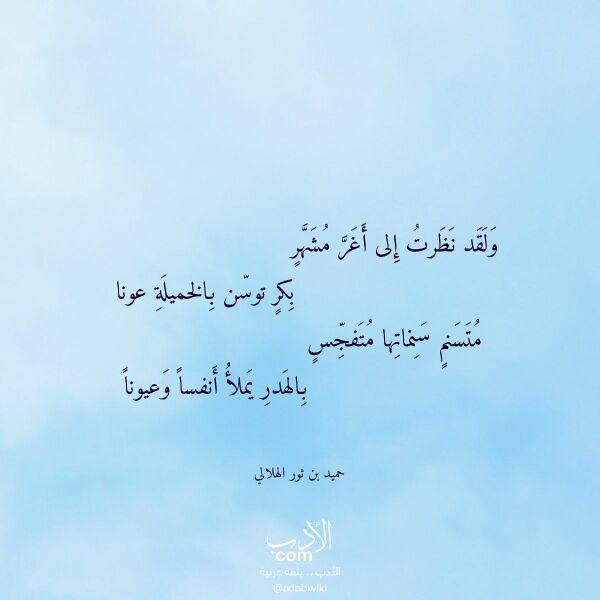 وَلَقَد نَظَرتُ إِلى أَغَرَّ مُشَهَّرٍ
بِكرٍ توسّن بِالخميلَةِ عونا
مُتَسَنمٍ سَنِماتِها مُتَفجِّسٍ
بِالهَدرِ يَملأُ أَنفساً وَعيوناً
حميد بن ثور الهلالي
الأدب
.com
الأدب .. بلغة عربية
@adabwiki